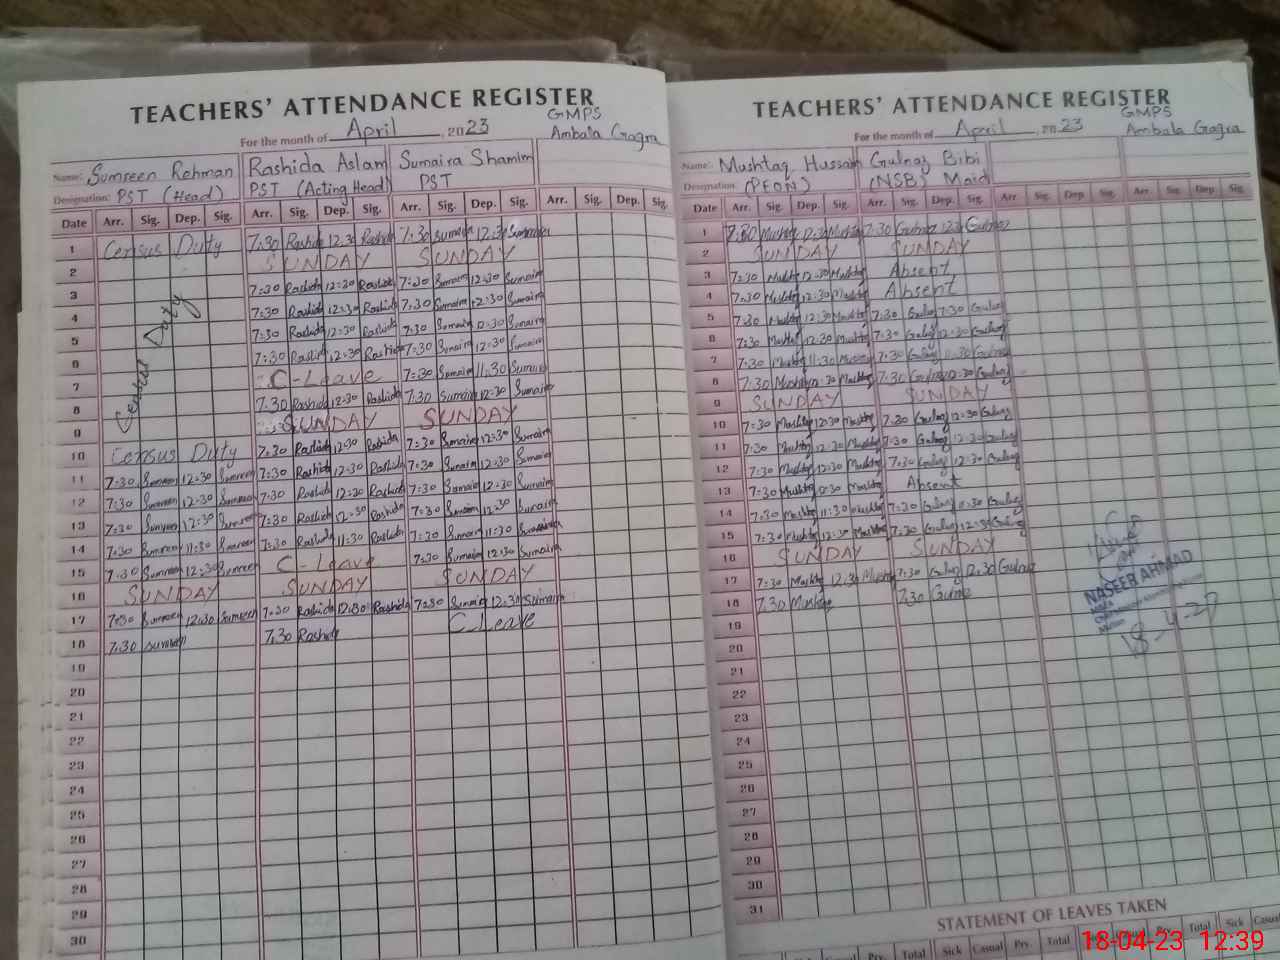 TEACHERS' ATTENDANCE REGISTER
GMPS
For the month of April, 2023 Ambala Gagra
Name: Sumreen Rehman Rashida Aslam Sumaira Shamim
Designation: PST (Head) PST (Acting Head) PST
Date Arr. Sig. Dep. Sig. Arr. Sig. Dep. Sig. Arr. Sig. Dep. Sig. Arr. Sig. Dep. Sig.
1 Census Duty 7:30 Rashida 12:30 Rashida 7:30 Sumaira 12:30 Sumaira
2 SUNDAY SUNDAY
Census Duty
3 7:30 Rashida 12:30 Rashida 7:30 Sumaira 12:30 Sumaira
4 7:30 Rashida 12:30 Rashida 7:30 Sumaira 12:30 Sumaira
5 7:30 Rashida 12:30 Rashida 7:30 Sumaira Sumaira
6 7:30 Rashida 12:30 Rashida 7:30 Sumaira 12:30 Sumaira
7 C-Leave 7:30 Sumaira 11:30 Sumaira
8 7:30 Rashida 12:30 Rashida 7:30 Sumaira 12:30 Sumaira
9 SUNDAY SUNDAY
10 Census Duty 7:30 Rashida 12:30 Rashida 7:30 Sumaira 12:30 Sumaira
11 7:30 Sumreen 12:30 Sumreen 7:30 Rashida 12:30 Rashida 7:30 Sumaira 12:30 Sumaira
12 7:30 Sumreen 12:30 Sumreen 7:30 Rashida 12:30 Rashida 7:30 Sumaira 12:30 Sumaira
13 7:30 Sumreen 12:30 Sumreen 7:30 Rashida 12:30 Rashida 7:30 Sumaira 12:30 Sumaira
14 7:30 Sumreen 11:30 Sumreen 7:30 Rashida 11:30 Rashida 7:30 Sumaira 11:30 Sumaira
15 7:30 Sumreen 12:30 Sumreen C-Leave 7:30 Sumaira 12:30 Sumaira
16 SUNDAY SUNDAY SUNDAY
17 7:30 Sumreen 12:30 Sumreen 7:30 Rashida 12:30 Rashida 7:30 Sumaira 12:30 Sumaira
18 7:30 Sumreen 7:30 Rashida C-Leave
19
20
21
22
23
24
25
26
27
28
29
30
TEACHERS' ATTENDANCE REGISTER
GMPS
For the month of April, 2023 Ambala Gagra
Name: Mushtaq Hussain Gulnaz Bibi
Designation: (PEON) (NSB) Maid
Date Arr. Sig. Dep. Sig. Arr. Sig. Dep. Sig. Arr. Sig. Dep. Sig. Arr. Sig. Dep. Sig.
1 7:30 Mushtaq 12:30 Mushtaq 7:30 Gulnaz 12:30 Gulnaz
2 SUNDAY SUNDAY
3 7:30 Mushtaq 12:30 Mushtaq Absent
4 7:30 Mushtaq 12:30 Mushtaq Absent
5 7:30 Mushtaq 12:30 Mushtaq 7:30 Gulnaz 7:30 Gulnaz
6 7:30 Mushtaq 12:30 Mushtaq 7:30 Gulnaz 12:30 Gulnaz
7 7:30 Mushtaq 11:30 Mushtaq 7:30 Gulnaz 11:30 Gulnaz
8 7:30 Mushtaq Mushtaq 7:30 Gulnaz Gulnaz
9 SUNDAY SUNDAY
10 7:30 Mushtaq 12:30 Mushtaq 7:30 Gulnaz 12:30 Gulnaz
11 7:30 Mushtaq 12:30 Mushtaq 7:30 Gulnaz 12:30 Gulnaz
12 7:30 Mushtaq 12:30 Mushtaq 7:30 Gulnaz 12:30 Gulnaz
13 7:30 Mushtaq Mushtaq Absent
14 7:30 Mushtaq 11:30 Mushtaq 7:30 Gulnaz 11:30 Gulnaz
15 7:30 Mushtaq 12:30 Mushtaq 7:30 Gulnaz 12:30 Gulnaz
16 SUNDAY SUNDAY
17 7:30 Mushtaq 12:30 Mushtaq 7:30 Gulnaz 12:30 Gulnaz
18 7:30 Mushtaq 7:30 Gulnaz
19
20
21
22
23
24
25
26
27
28
29
30
31
NASEEB AHMAD
STATEMENT OF LEAVES TAKEN
Casual Prv. Total Sick Casual Prv. Total Sick Casual Prv. Total Sick Casual
18-04-23 12:39